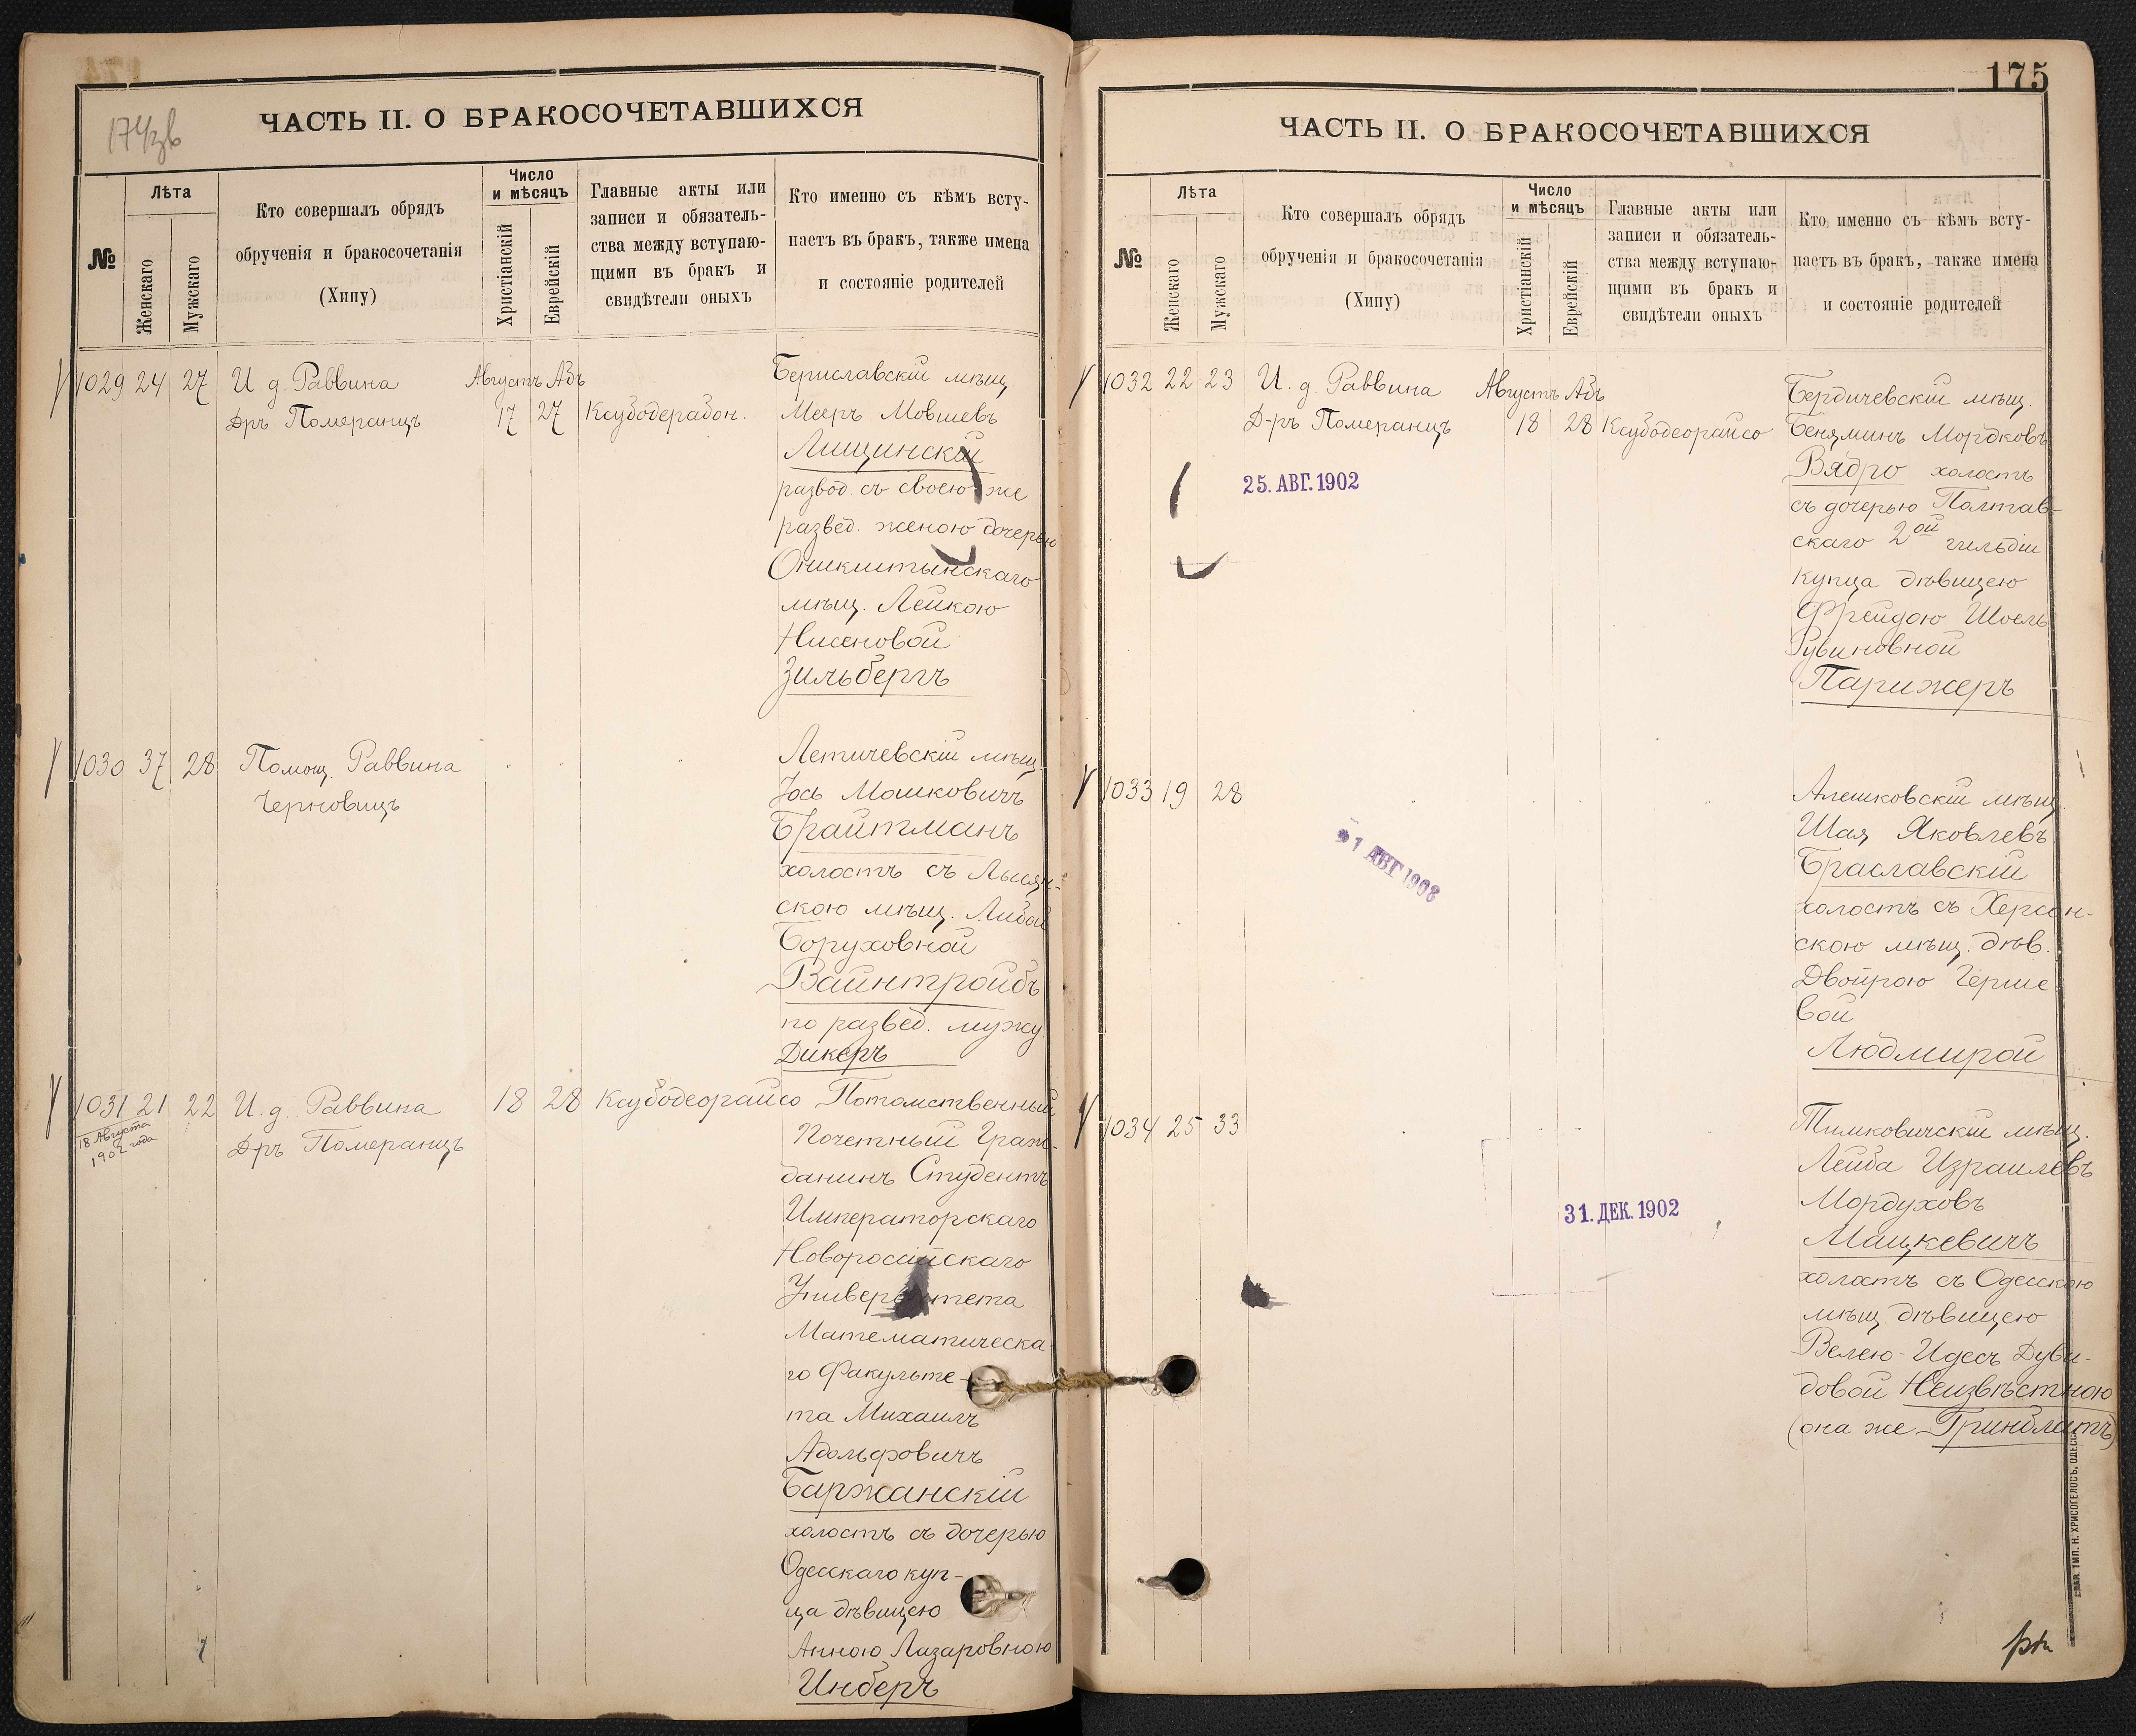 174зв
ЧАСТЬ II. О БРАКОСОЧЕТАВШИХСЯ
№
Лѣта
Женскаго
Мужскаго
Кто совершалъ обрядъ
обрученія и бракосочетанія
(Хипу)
Число
и мѣсяцъ
Христіанскій
Еврейскій
Главные акты или
записи и обязатель-
ства между вступаю-
щими въ бракъ и
свидѣтели оныхъ
Кто именно съ кѣмъ всту-
паетъ въ бракъ, также имена
и состояніе родителей
1029 24 27 И д. Раввина Августъ Абъ Бериславскій мѣщ.
Дръ Померанцъ 17 27 Ксубодерабон. Мееръ Мовшевъ
Лищинскій
развод съ своею же
развед. женою дочерью
Оникштынскаго
мѣщ. Лейкою
Нисеновой
Зильбергъ
1030 37 28 Помощ. Раввина Летичевскій мѣщ.
Черновицъ Іось Мошковичъ
Брайтманъ
холостъ съ Лысян-
скою мѣщ. Либой
Боруховной
Вайнтройбъ
по развед. мужу
Дикеръ
1031 21 22 И. д. Раввина 18 28 Ксубодеорайсо Потомственный
18 Августа
1902 года
Дръ Померанцъ Почетный Граж-
данинъ Студентъ
Императорскаго
Новороссійскаго
Университета
Математическа-
го Факульте-
та Михаилъ
Адольфовичъ
Баржанскій
холостъ съ дочерью
Одесскаго куп-
ца дѣвицею
Анною Лазаровною
Инберъ
175
ЧАСТЬ II. О БРАКОСОЧЕТАВШИХСЯ
№
Лѣта
Женскаго
Мужскаго
Кто совершалъ обрядъ
обрученія и бракосочетанія
(Хипу)
Число
и мѣсяцъ
Христіанскій
Еврейскій
Главные акты или
записи и обязатель-
ства между вступаю-
щими въ бракъ и
свидѣтели оныхъ
Кто именно съ кѣмъ всту-
паетъ въ бракъ, также имена
и состояніе родителей
1032 22 23 И. д. Раввина Августъ Абъ Бердичевскій мѣщ.
Д-ръ Померанцъ 18 28 Ксубодеорайсо Беняминъ Мордковъ
Вядро холостъ
25. АВГ. 1902
съ дочерью Полтав-
скаго 2ой гильдіи
купца дѣвицею
Фрейдою Шоель
Рувиновной
Парижеръ
1033 19 28 Алешковскій мѣщ.
Шая Яковлевъ
Браславскій
1 АВГ 1908
холостъ съ Херсон-
скою мѣщ. дѣв.
Двойрою Герше
вой
Людмирой
1034 25 33 Тимковичскій мѣщ.
Лейба Израилевъ
Мордуховъ
31. ДЕК. 1902
Мацкевичъ
холостъ съ Одесскою
мѣщ. дѣвицею
Велею-Идесъ Дуви-
довой Неизвѣстною
(она же Гринблатъ)
СЛАВ. ТИП. Н. ХРИСОГЕЛОСЪ, ОДЕССА